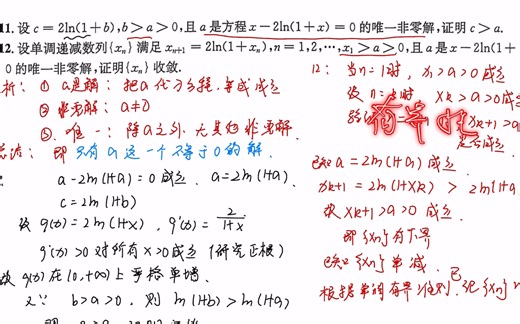 11. 设 c = 2ln(1+b), b > a > 0, 且 a 是方程 x − 2ln(1+x) = 0 的唯一非零解, 证明 c > a.
12. 设单调递减数列{xₙ} 满足 xₙ₊₁ = 2ln(1+xₙ), n = 1,2,⋯, x₁ > a > 0, 且 a 是 x − 2ln(1+
0 的唯一非零解, 证明{xₙ} 收敛.
析: ① a是解: 把a代方程, 等式成立
② 非零解: a≠0
③. 唯一: 除a之外 尤其他非零解.
即 只有 a 这一个不等于0的解.
a − 2ln(1+a) = 0 成立. a = 2ln(1+a)
c = 2ln(1+b)
设 g(x) = 2ln(1+x), g'(x) = 2/(1+x)
g'(x) > 0 对所有 x > 0 成立 (研究正根)
故 g(x) 在 (0,+∞) 上严格单增.
又∵ b > a > 0, 则 ln(1+b) > ln(1+a)
12: 当 n=1时, x₁ > a > 0 成立
设 n=k时 xk > a > 0 成立
有界性
xk+1 > a
是否成立
已知 a = 2ln(1+a) 成立.
xk+1 = 2ln(1+xk) > 2ln(1+a
故 xk+1 > a > 0 成立.
即 {xn} 有下界
已知 {xn} 单减.
根据单调有界准则, 已